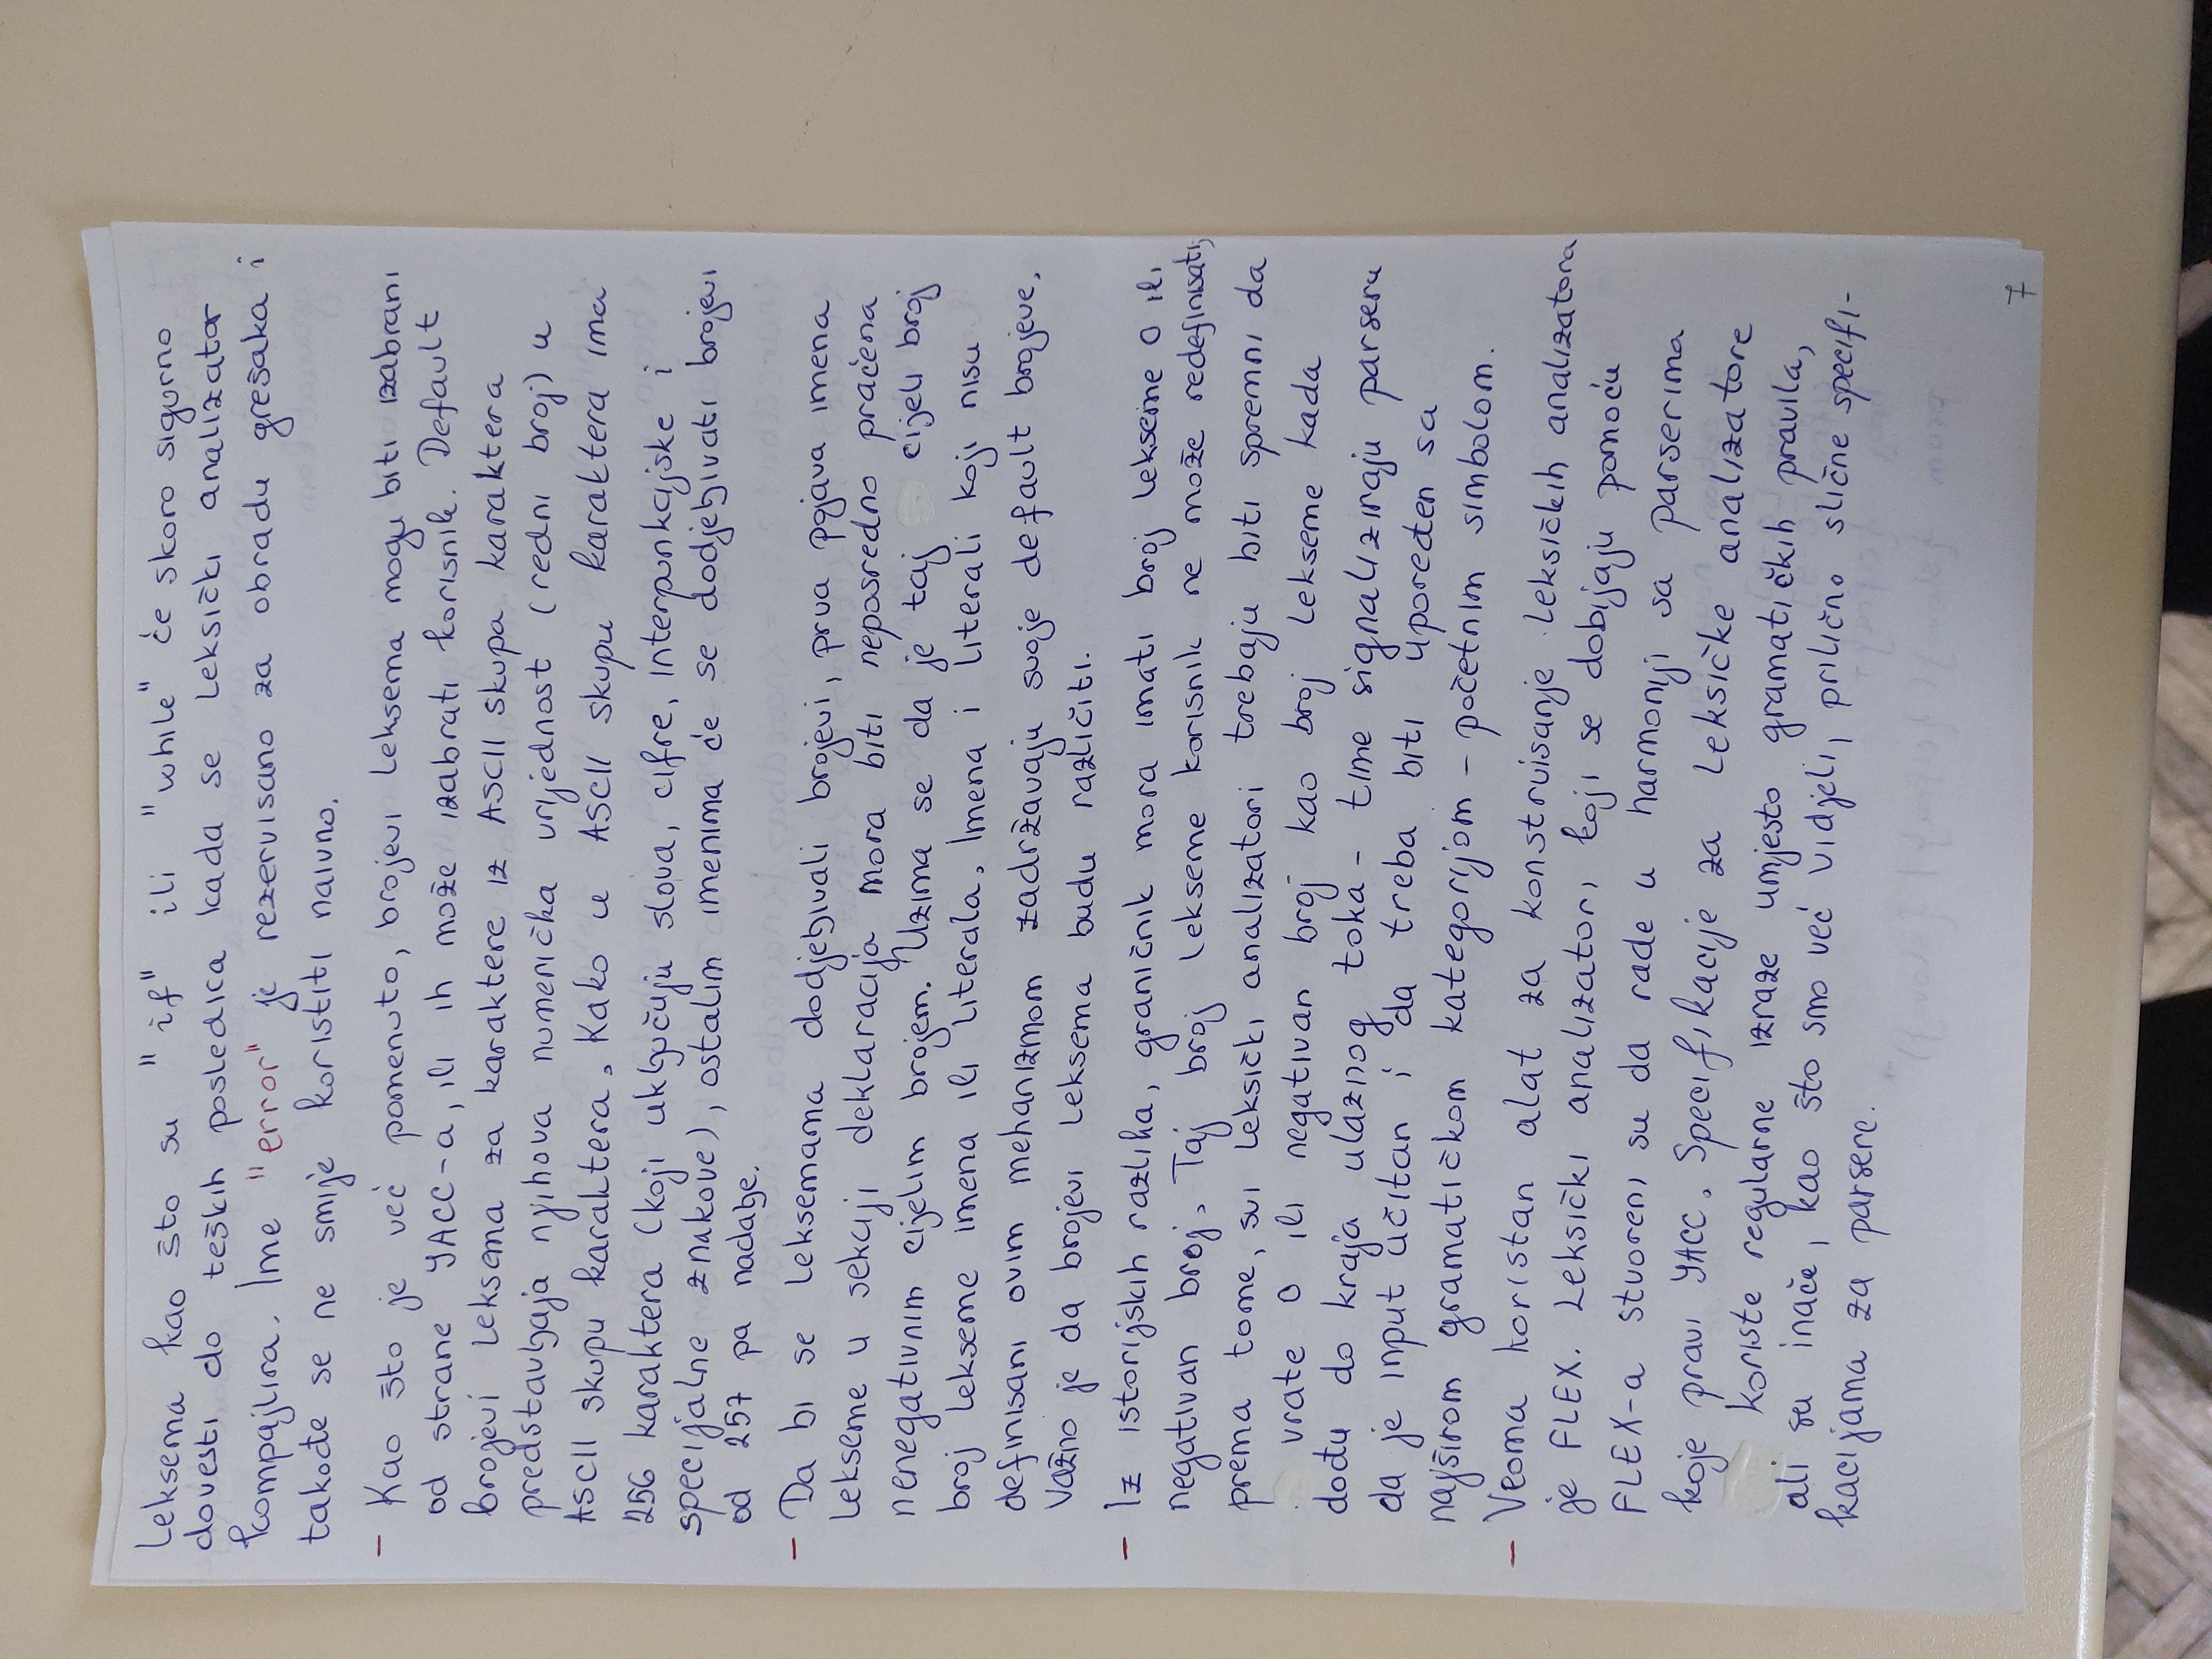 Leksema kao što su "if" ili "while" će skoro sigurno
dovesti do teških posledica kada se leksički analizator
kompajlira. Ime "error" je rezervisano za obradu grešaka i
takođe se ne smije koristiti naivno.
- Kao što je već pomenuto, brojevi leksema mogu biti izabrani
od strane YACC-a, ili ih može izabrati korisnik. Default
brojevi leksema za karaktere iz ASCII skupa karaktera
predstavljaja njihova numerička vrijednost (redni broj) u
ASCII skupu karaktera. Kako u ASCII skupu karaktera ima
256 karaktera (koji uključuju slova, cifre, interpunkcijske i
specijalne znakove), ostalim imenima će se dodjeljivati brojevi
od 257 pa nadalje.
- Da bi se leksemama dodjeljivali brojevi, prva pojava imena
lekseme u sekciji deklaracija mora biti neposredno praćena
nenegativnim cijelim brojem. Uzima se da je taj cijeli broj
broj lekseme imena ili literala. Imena i literali koji nisu
definisani ovim mehanizmom zadržavaju svoje default brojeve.
Važno je da brojevi leksema budu različiti.
- Iz istorijskih razlika, graničnik mora imati broj lekseme 0 ili
negativan broj. Taj broj lekseme korisnik ne može redefinisati;
prema tome, svi leksički analizatori trebaju biti spremni da
vrate 0 ili negativan broj kao broj lekseme kada
dođu do kraja ulaznog toka - time signaliziraju parseru
da je input učitan i da treba biti upoređen sa
najširom gramatičkom kategorijom - početnim simbolom.
- Veoma koristan alat za konstruisanje leksičkih analizatora
je FLEX. Leksički analizatori koji se dobijaju pomoću
FLEX-a stvoreni su da rade u harmoniji sa parserima
koje pravi YACC. Specifikacije za leksičke analizatore
koriste regularne izraze umjesto gramatičkih pravila,
ali su inače, kao što smo već vidjeli, prilično slične specifi-
kacijama za parsere.
7